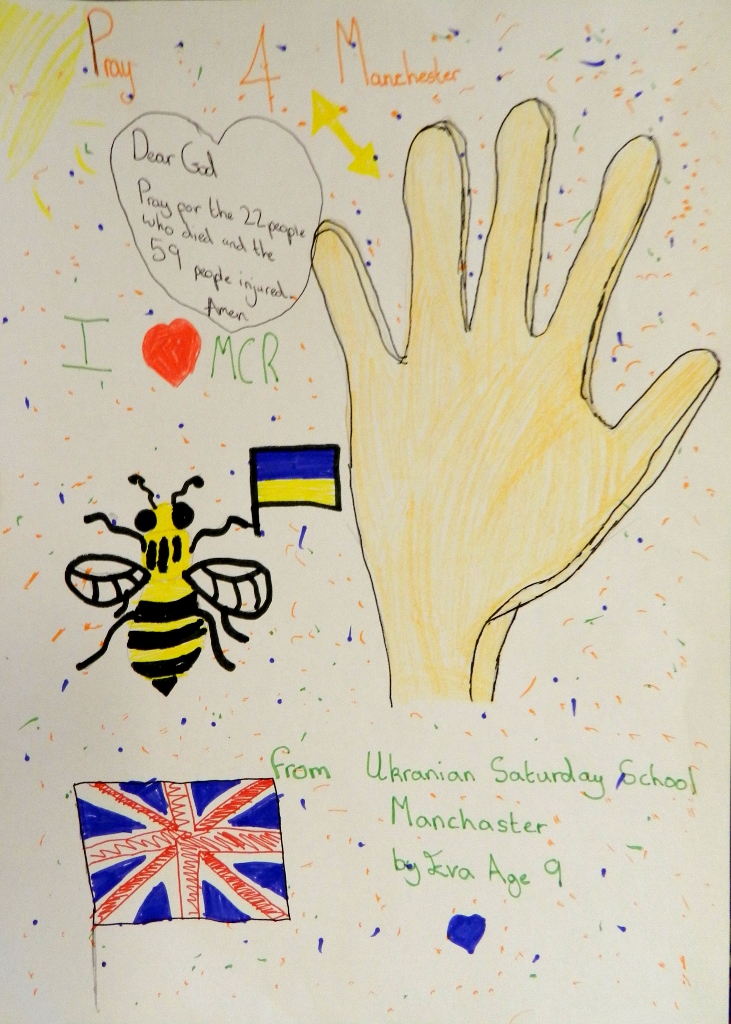 Pray 4 Manchester
Dear God
Pray for the 22 people
who died and the
59 people injured.
Amen
I ❤ MCR
from Ukranian Saturday School
Manchaster
by Eva Age 9